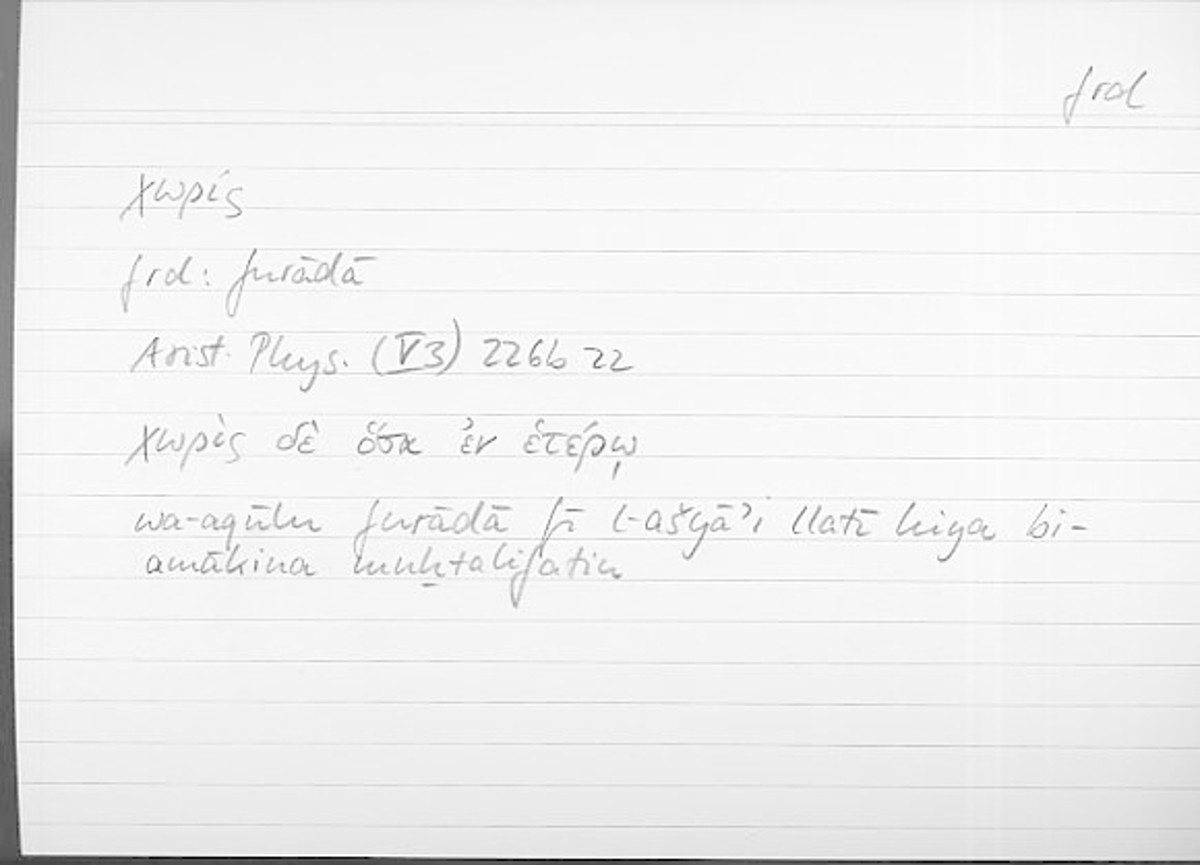 frd
χωρίς
frd: furādā
Arist. Phys. (V3) 226b 22
χωρὶς δὲ ὅσα ἐν ἑτέρῳ
wa-aqūlu furādā fī l-ašyāʾi llatī hiya bi-
amākina muḫtalifatin